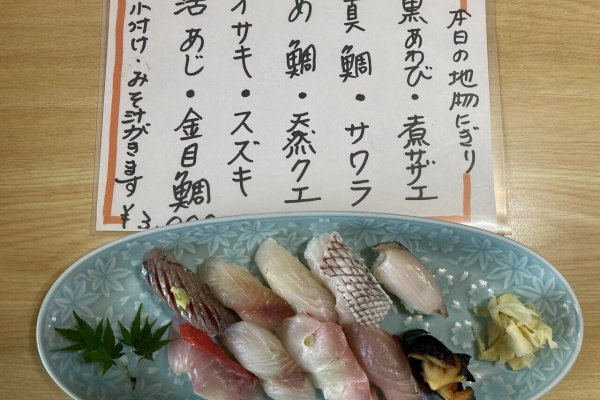 本日の地物にぎり
黒あわび・煮サザエ
真鯛・サワラ
め鯛・天然クエ
イサキ・スズキ
活あじ・金目鯛
小付け・みそ汁がきます
¥3,000